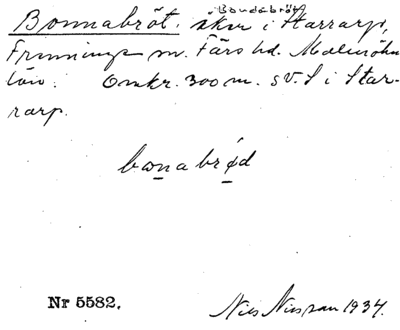 Bondabröt
Bonnabröt. åker i Starrarp,
Frenninge sn. Färs hd. Malmöhus
län. Omkr. 300 m. SV. S i Star-
rarp.
bonabrød
Nr 5582.
Nils Nilsson 1934.